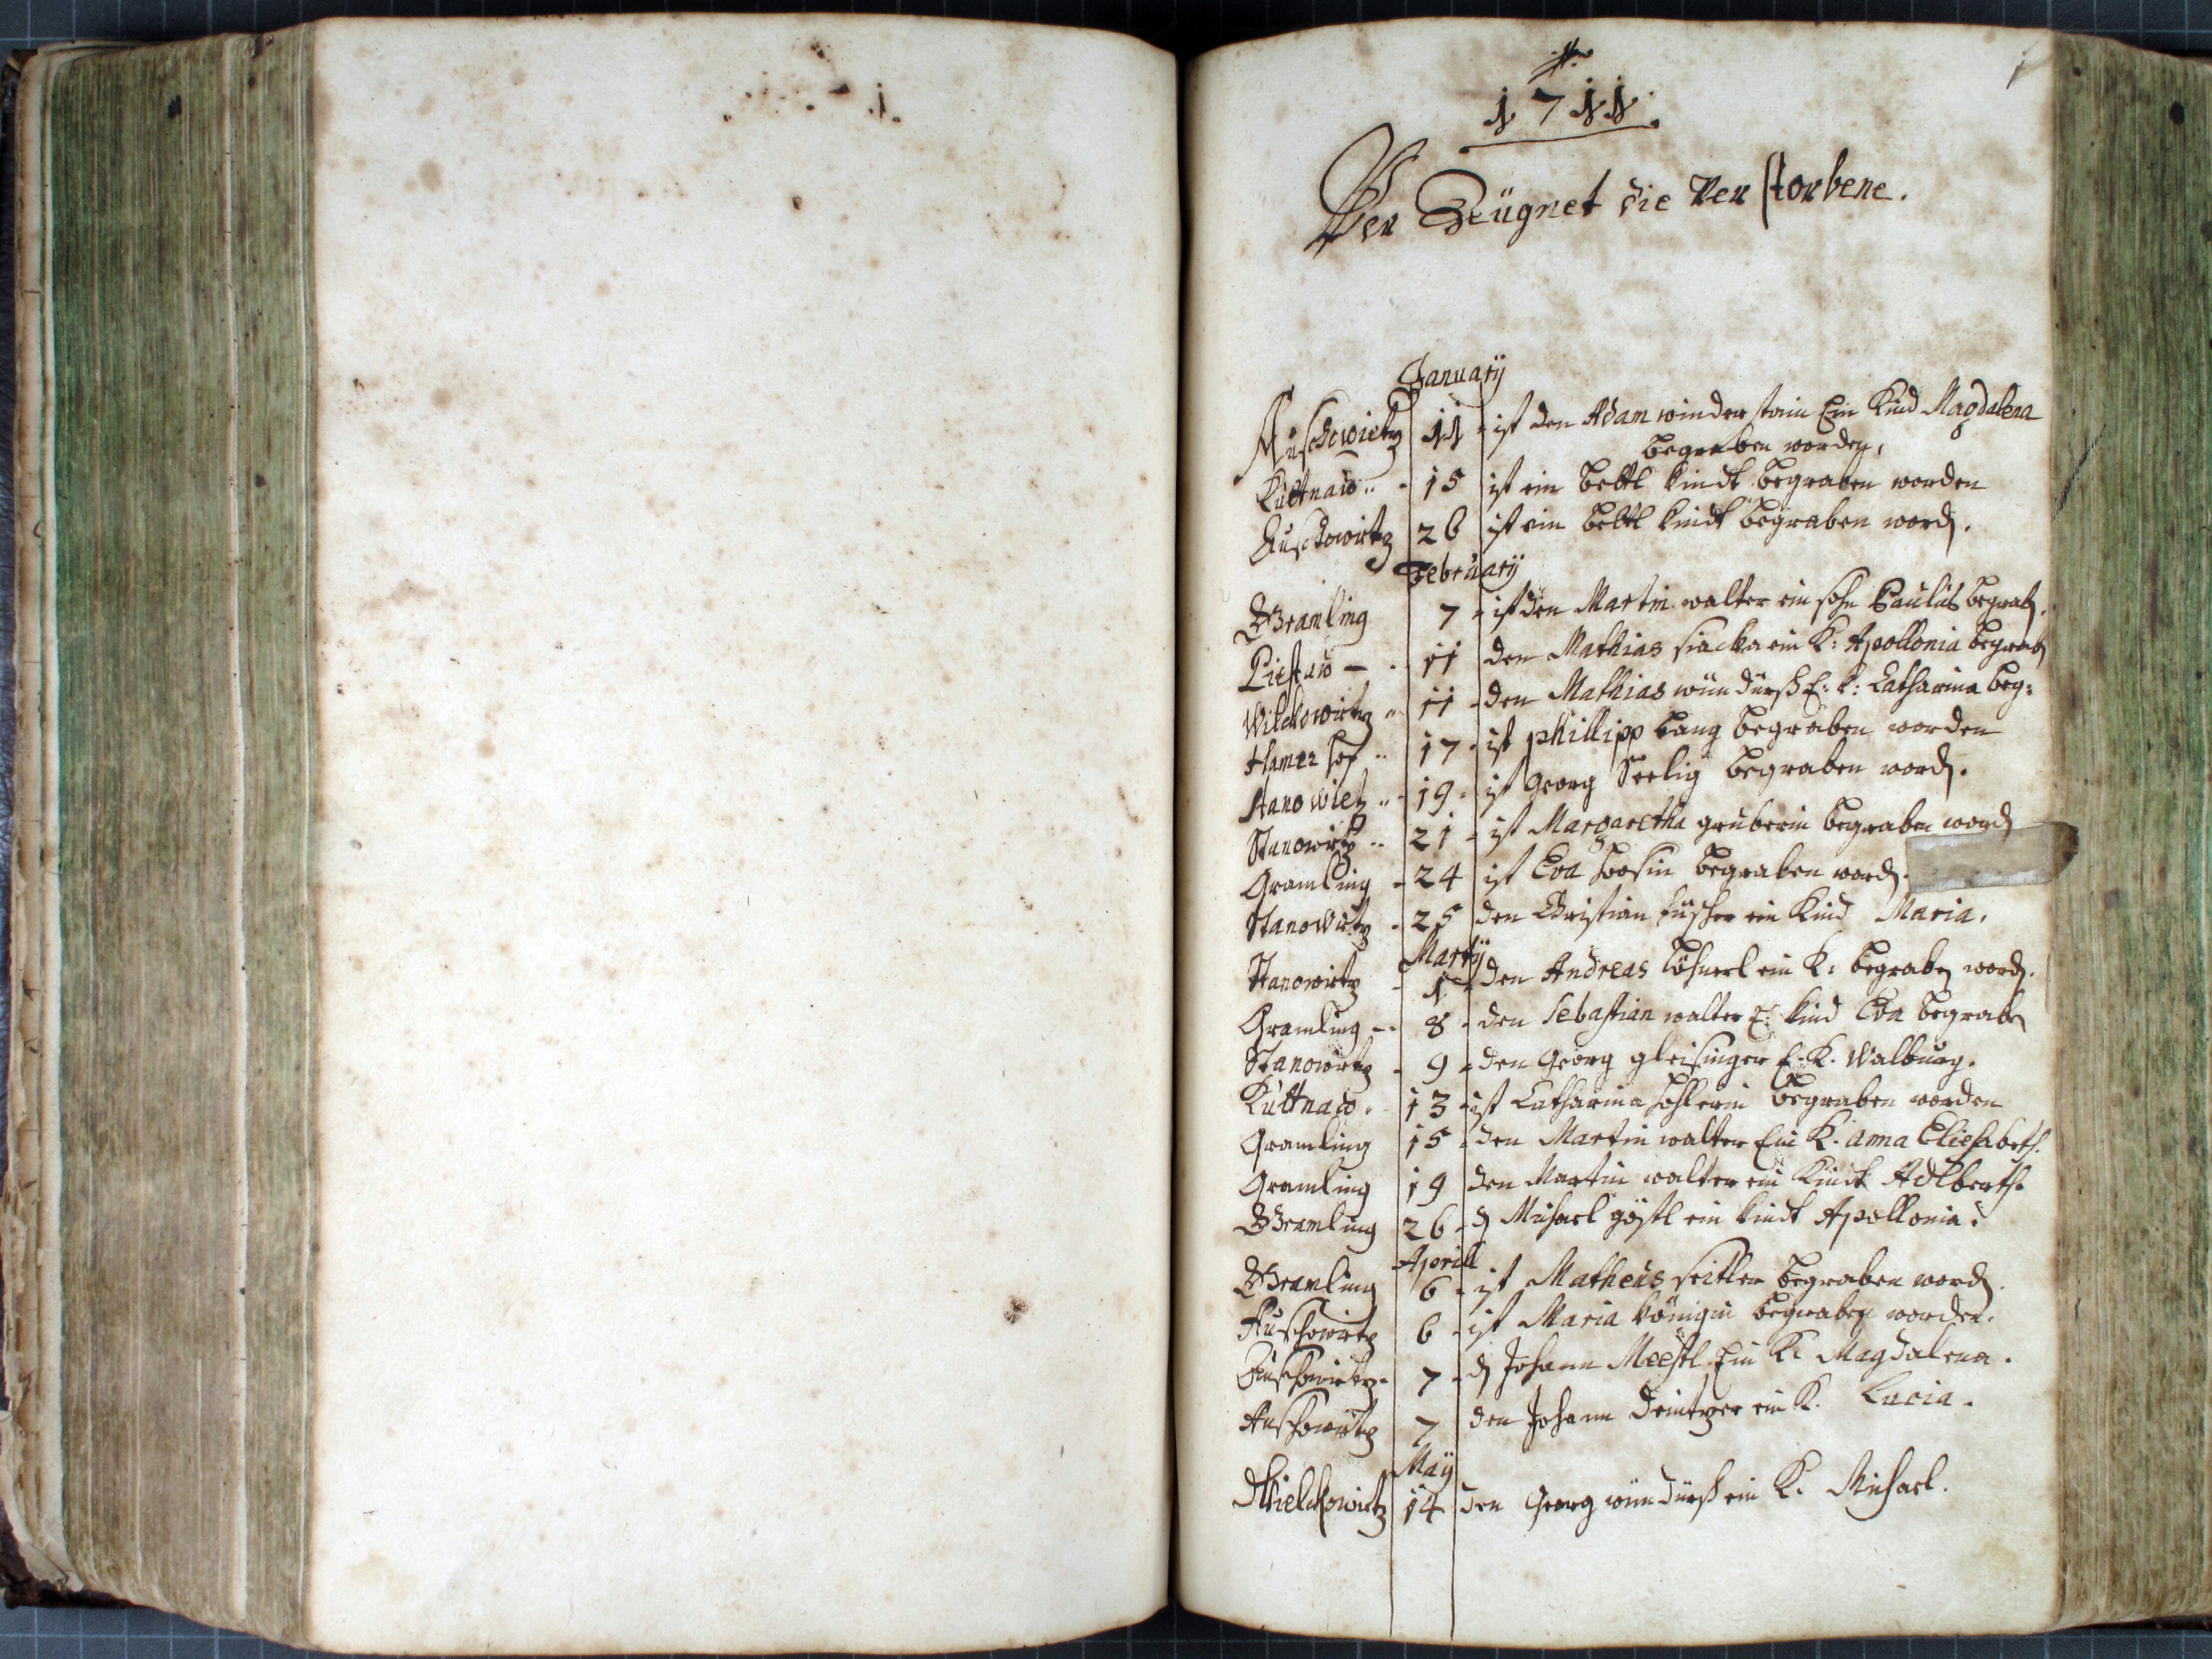 1711.
Ver Zeügnet die Ver storbene.
January
Auschowietz 11 ist den Adam winder stain Ein Kind Magdalena
begraben worden.
Kuttnaw 15 ist ein bettl kindt begraben worden
Auschowitz 26 ist ein bettl kindt begraben word.
February
Gramling 7 ist den Martin walter ein sohn Paulus begrab.
Pistaw 11 den Mathias siacka ein K: Apollonia begrab
Wilckowitz 11 den Mathias E: k: Catharina beg:
Hamer hof 17 ist phillipp Lang begraben worden
Stanowietz 19 ist Georg Seelig begraben word.
Stanowitz 21 ist Margaretha gruberin begraben word
Gramling 24 ist Eva begraben word.
Stanowitz 25 den Christian füscher ein Kind Maria.
Marty
Stanowitz 1 den Andreas löhnerl ein K: begraben word.
Gramling 8 den Sebastian walter E: kind Eva begraben
Stanowitz 9 den Georg gleisinger E: K. Walburg.
Kuttnaw 13 ist Catharina begraben worden
Gramling 15 den Martin walter Ein K. anna Eliesabeth.
Gramling 19 den Martin walter ein Kindt Adlberth.
Gramling 26 d Michael ein kindt Apollonia.
Aprill
Gramling 6 ist Matheus seitler begraben word.
Auschowitz 6 ist Maria königin begraben worden.
Auschowitz 7 d Johann Meestl Ein K. Magdalena.
Auschowitz 7 den Johann ein K. Lucia.
May
Wielckowitz 14 den Georg ein K. Michael.